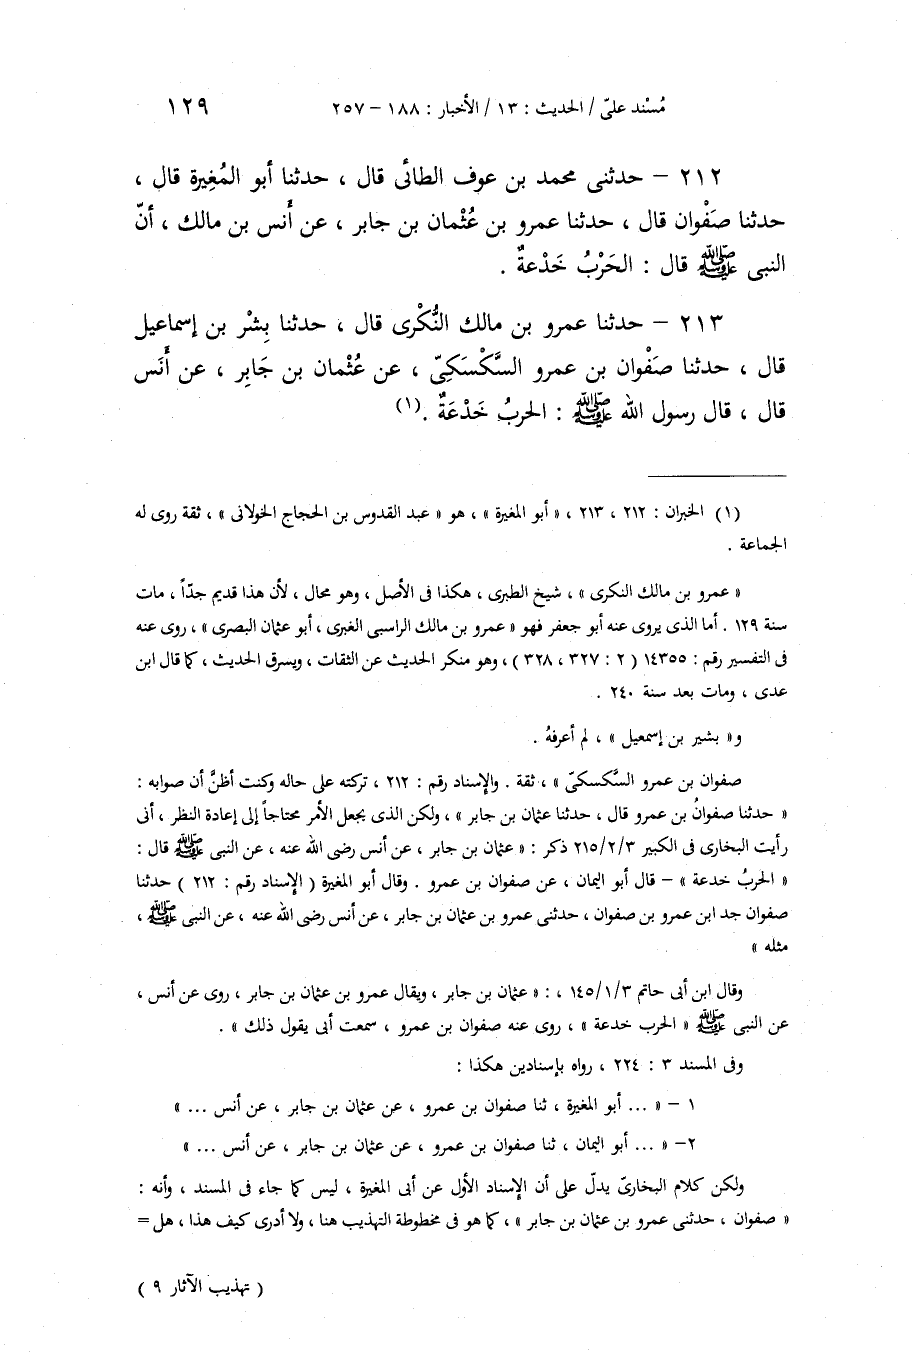 مُسْند علىّ / الحديث : ١٣ / الأخبار : ١٨٨ – ٢٥٧ ١٢٩
٢١٢ – حدثنى محمد بن عوف الطائى قال ، حدثنا أبو المُغِيرة قال ،
حدثنا صَفْوان قال ، حدثنا عمرو بن عُثْمان بن جابر ، عن أَنس بن مالك ، أنّ
النبى ﷺ قال : الحَرْبُ خَدْعةٌ .
٢١٣ – حدثنا عمرو بن مالك النُّكْرى قال ، حدثنا بِشْر بن إسماعيل
قال ، حدثنا صَفْوان بن عمرو السَّكْسَكِىّ ، عن عُثْمان بن جَابِر ، عن أَنَس
قال ، قال رسول الله ﷺ : الحربُ خَدْعَةٌ .(١)
(١) الخبران : ٢١٢ ، ٢١٣ ، « أبو المغيرة » ، هو « عبد القدوس بن الحجاج الخولانى » ، ثقة روى له
الجماعة .
« عمرو بن مالك النكرى » ، شيخ الطبرى ، هكذا فى الأصل ، وهو محال ، لأن هذا قديم جدّاً ، مات
سنة ١٢٩ . أما الذى يروى عنه أبو جعفر فهو « عمرو بن مالك الراسبى الغبرى ، أبو عثمان البصرى » ، روى عنه
فى التفسير رقم : ١٤٣٥٥ ( ٢ : ٣٢٧ ، ٣٢٨ ) ، وهو منكر الحديث عن الثقات ، ويسرق الحديث ، كما قال ابن
عدى ، ومات بعد سنة ٢٤٠ .
و« بشير بن إسمعيل » ، لم أعرفهُ .
صفوان بن عمرو السَّكسكىّ » ، ثقة . والإسناد رقم : ٢١٢ ، تركته على حاله وكنت أظنَّ أن صوابه :
« حدثنا صفوانُ بن عمرو قال ، حدثنا عثمان بن جابر » ، ولكن الذى يجعل الأمر محتاجاً إلى إعادة النظر ، أنى
رأيت البخارى فى الكبير ٢١٥/٢/٣ ذكر : « عثمان بن جابر ، عن أنس رضى الله عنه ، عن النبى ﷺ قال :
« الحربُ خدعة » – قال أبو اليمان ، عن صفوان بن عمرو . وقال أبو المغيرة ( الإسناد رقم : ٢١٢ ) حدثنا
صفوان جد ابن عمرو بن صفوان ، حدثنى عمرو بن عثمان بن جابر ، عن أنس رضى الله عنه ، عن النبى ﷺ ،
مثله »
وقال ابن أبى حاتم ١٤٥/١/٣ ، : « عثمان بن جابر ، ويقال عمرو بن عثمان بن جابر ، روى عن أنس ،
عن النبى ﷺ « الحرب خدعة » ، روى عنه صفوان بن عمرو ، سمعت أبى يقول ذلك » .
وفى المسند ٣ : ٢٢٤ ، رواه بإسنادين هكذا :
١ – « ... أبو المغيرة ، ثنا صفوان بن عمرو ، عن عثمان بن جابر ، عن أنس ... »
٢– « ... أبو اليمان ، ثنا صفوان بن عمرو ، عن عثمان بن جابر ، عن أنس ... »
ولكن كلام البخارىّ يدلّ على أن الإسناد الأول عن أبى المغيرة ، ليس كما جاء فى المسند ، وأنه :
« صفوان ، حدثنى عمرو بن عثمان بن جابر » ، كما هو فى مخطوطة التهذيب هنا ، ولا أدرى كيف هذا ، هل =
( تهذيب الآثار ٩ )